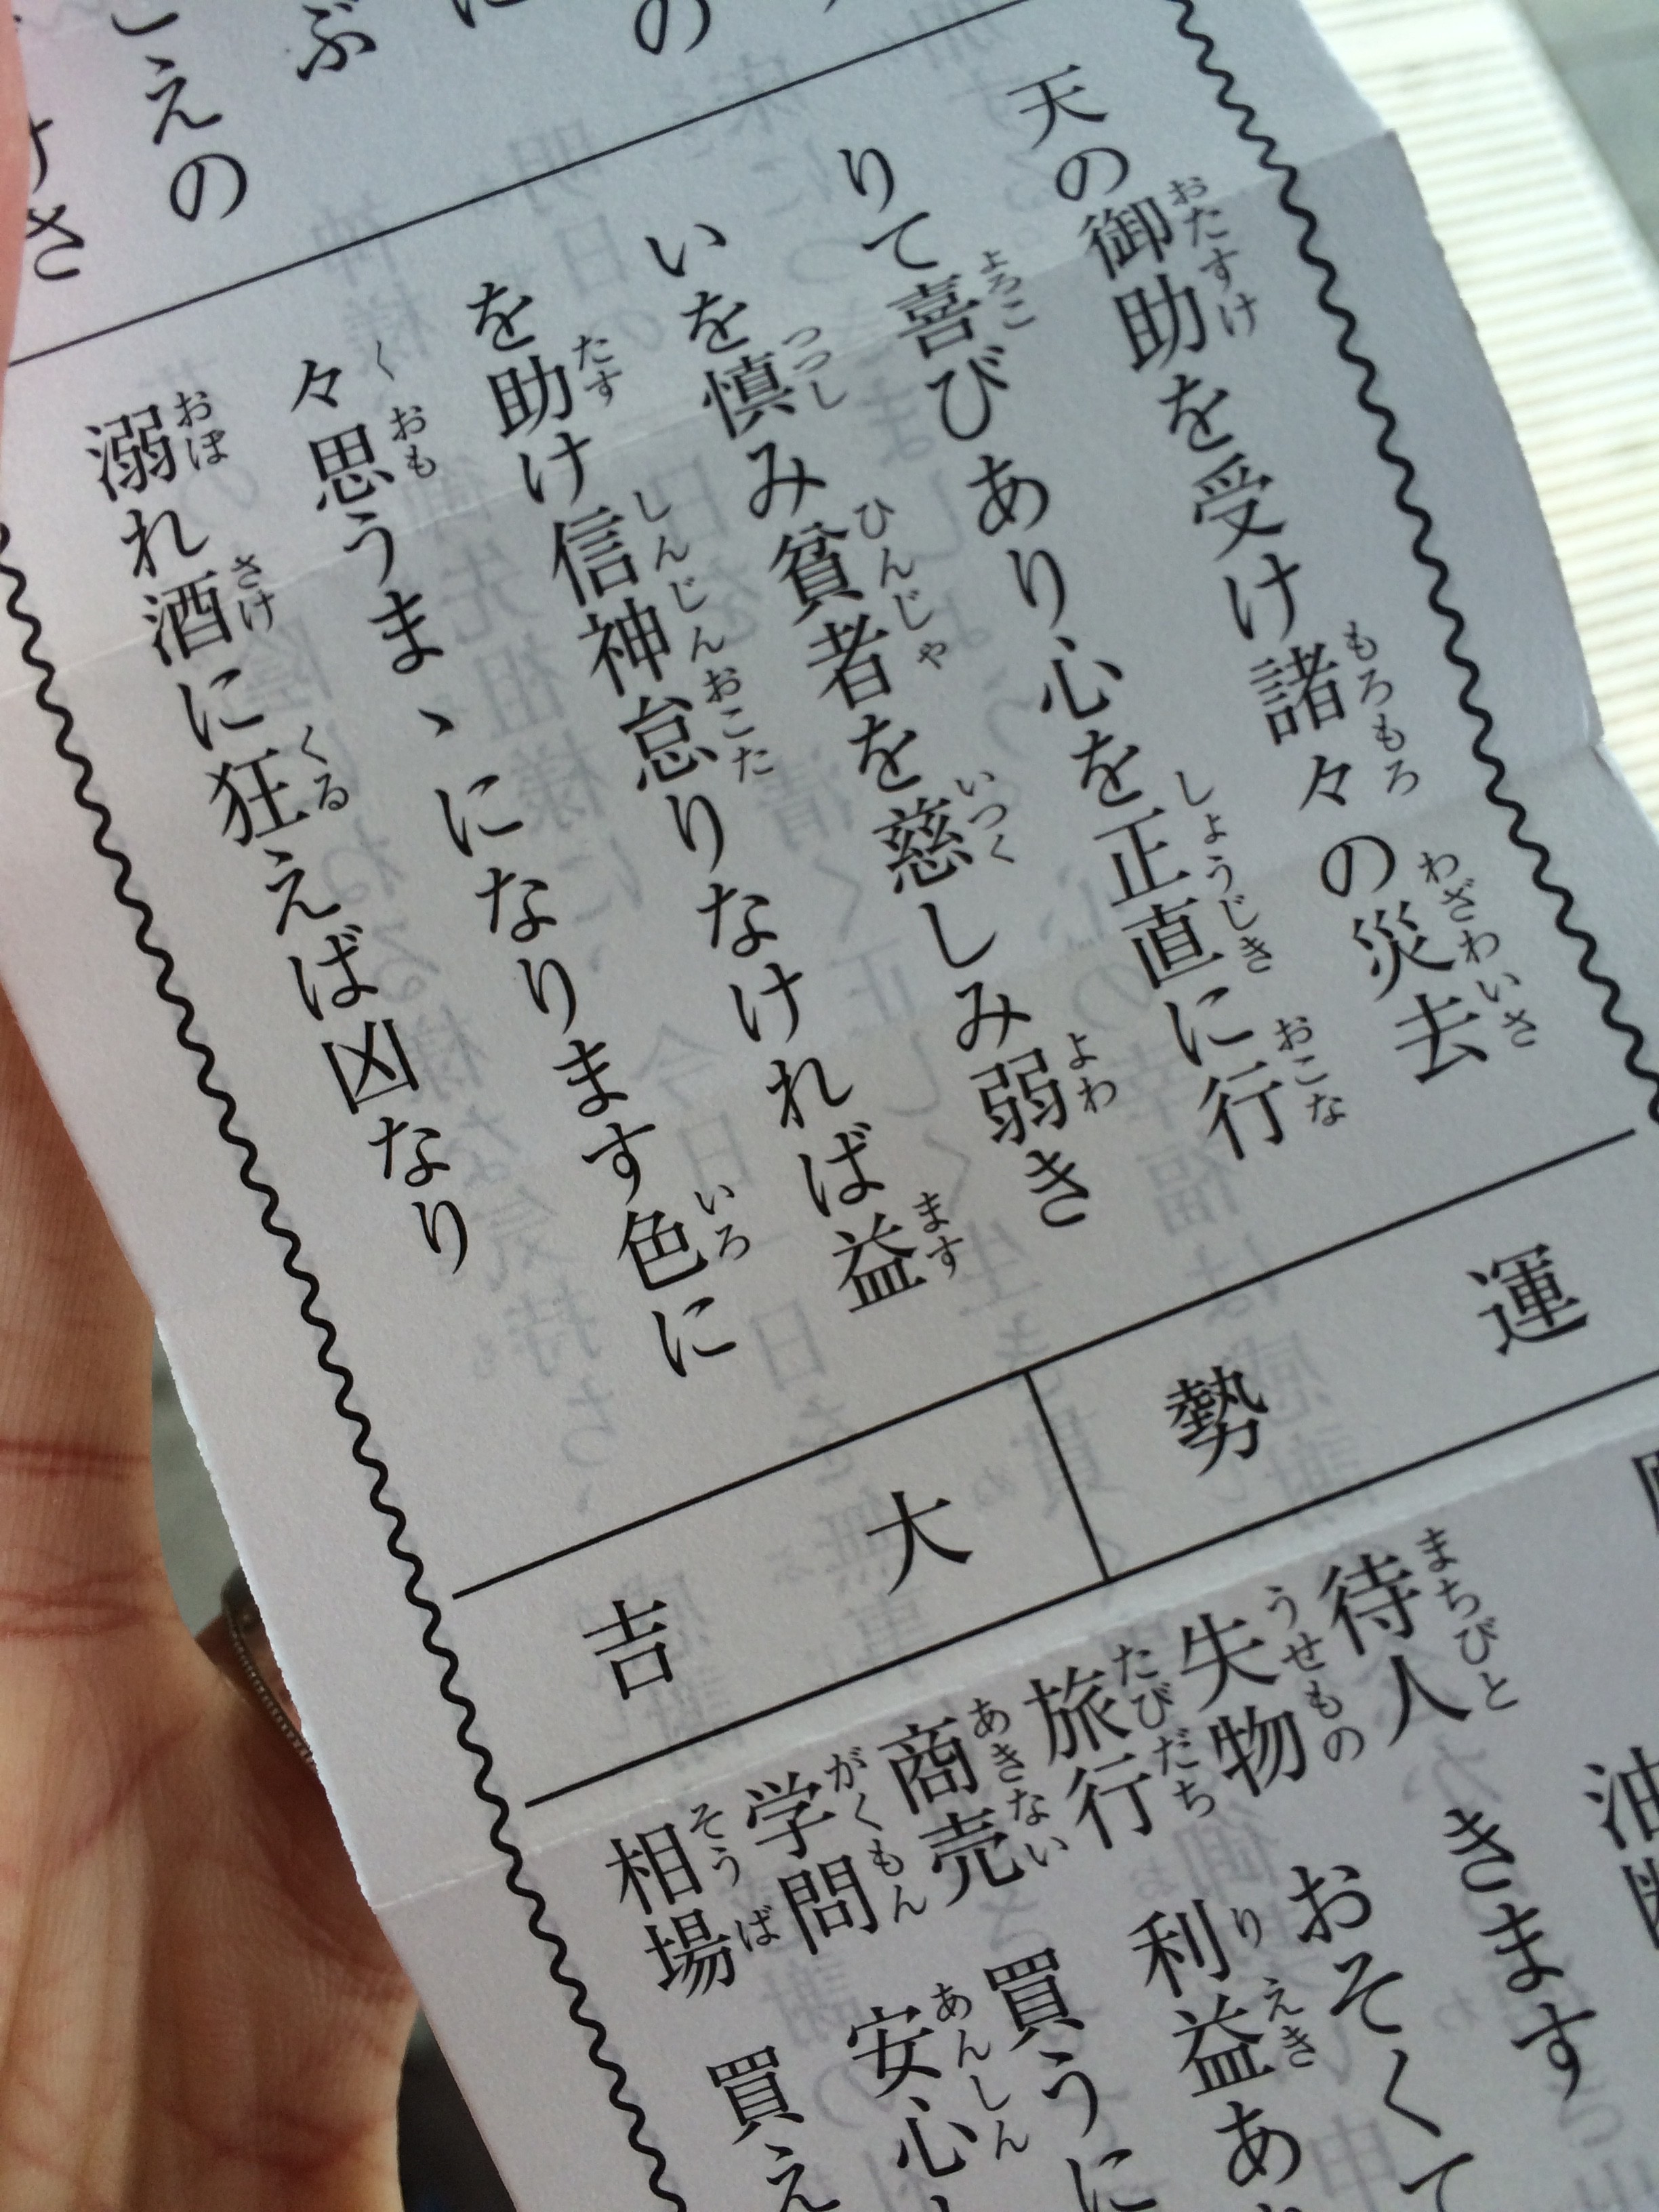 の
ぶ
こえの
さ
天の御助を受け諸々の災去
りて喜びあり心を正直に行
いを慎み貧者を慈しみ弱き
を助け信神怠りなければ益
々思うまゝになります色に
溺れ酒に狂えば凶なり
運勢
大吉
油断
きます
待人
失物 おそくて
旅行 利益あ
商売 買うに
学問 安心
相場 買え